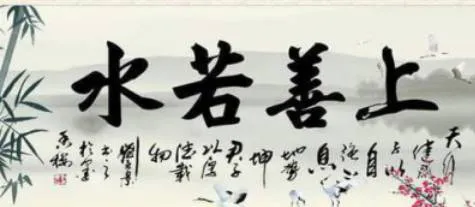 上善若水
天行
健君
子以
自
强不
息
地势
坤
君子
以厚
德载
物